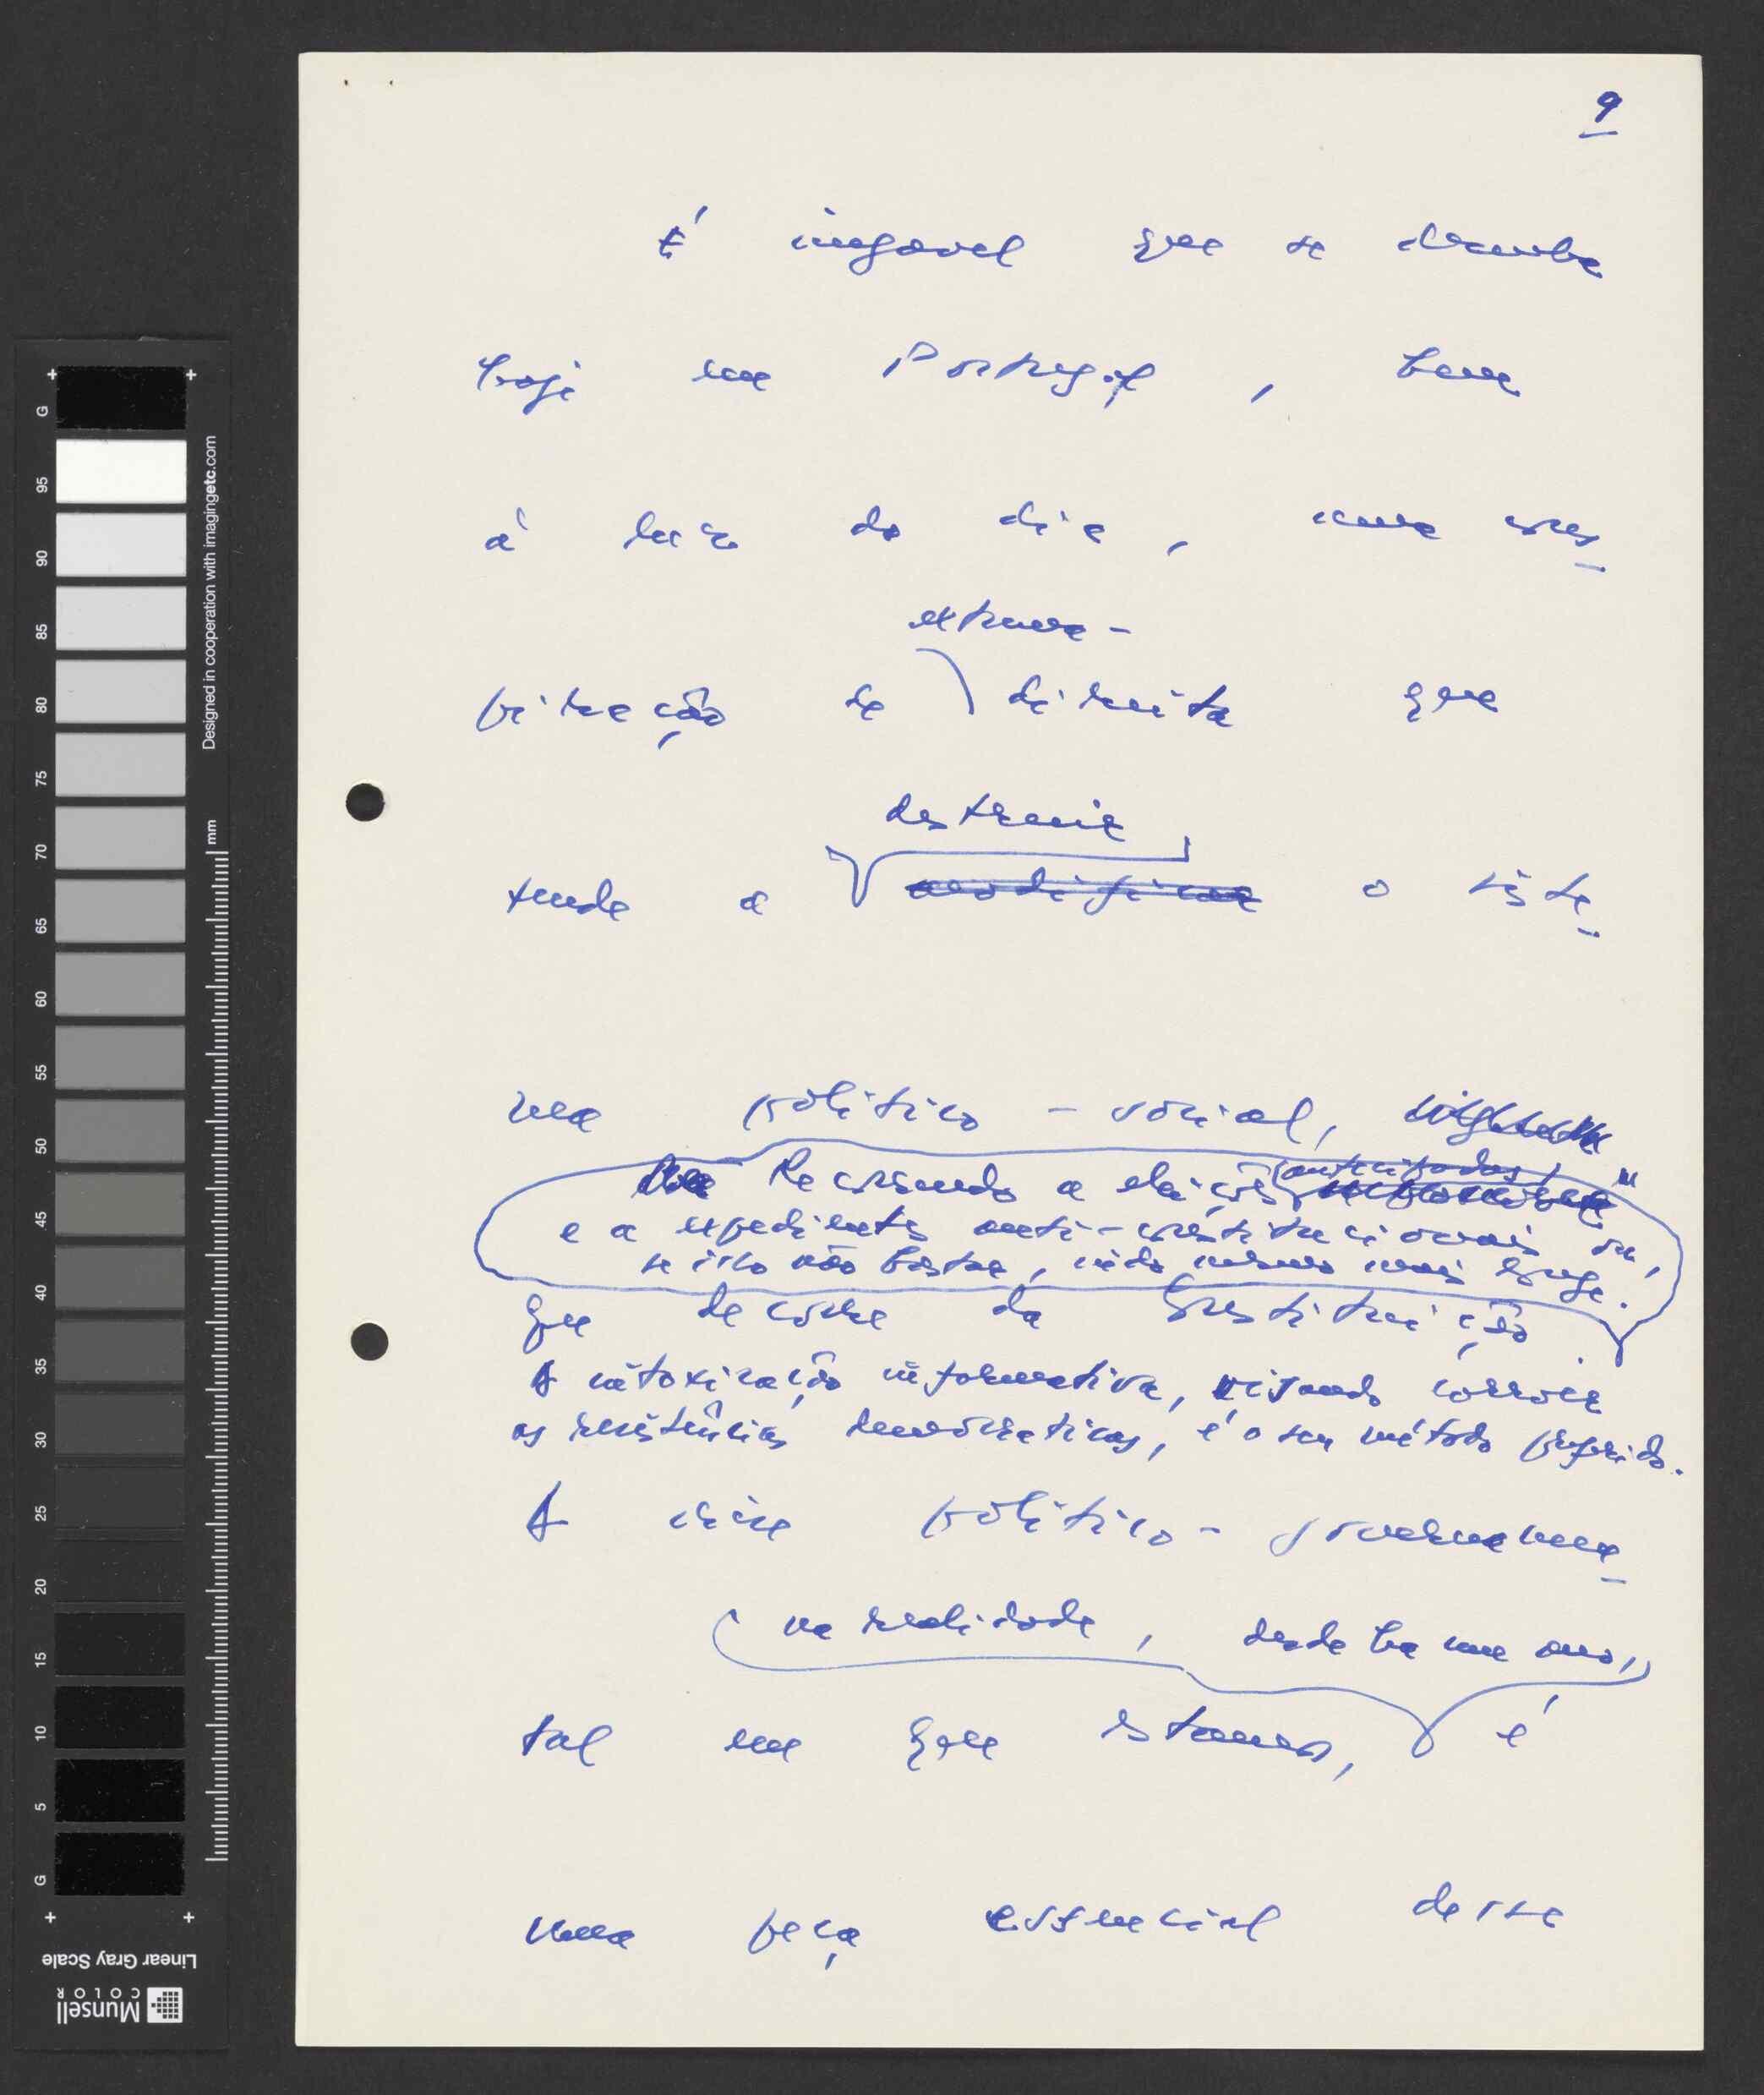 9
É inegavel que se desenha
hoje em Portugal, bem
à luz do dia, uma cons
extrema-
piração de direita que
destruir
tende a modificar o siste
ma político-social,
Recorrendo a eleições antecipadas,
e a expedientes anti-constitucionais ou,
se isso não bastar, indo mesmo mais longe.
que decorre da Constituição.
A intoxicação informativa, visando corroer
as resistências democraticas, é o seu método preferido.
A crise político-governamen
na realidade, desde ha um ano,
tal em que estamos, é
uma peça essencial desse
G
95
90
85
80
75
70
65
60
55
50
45
40
35
30
25
20
15
10
5
G
Designed in cooperation with imagingetc.com
mm
Linear Gray Scale
Munsell
COLOR